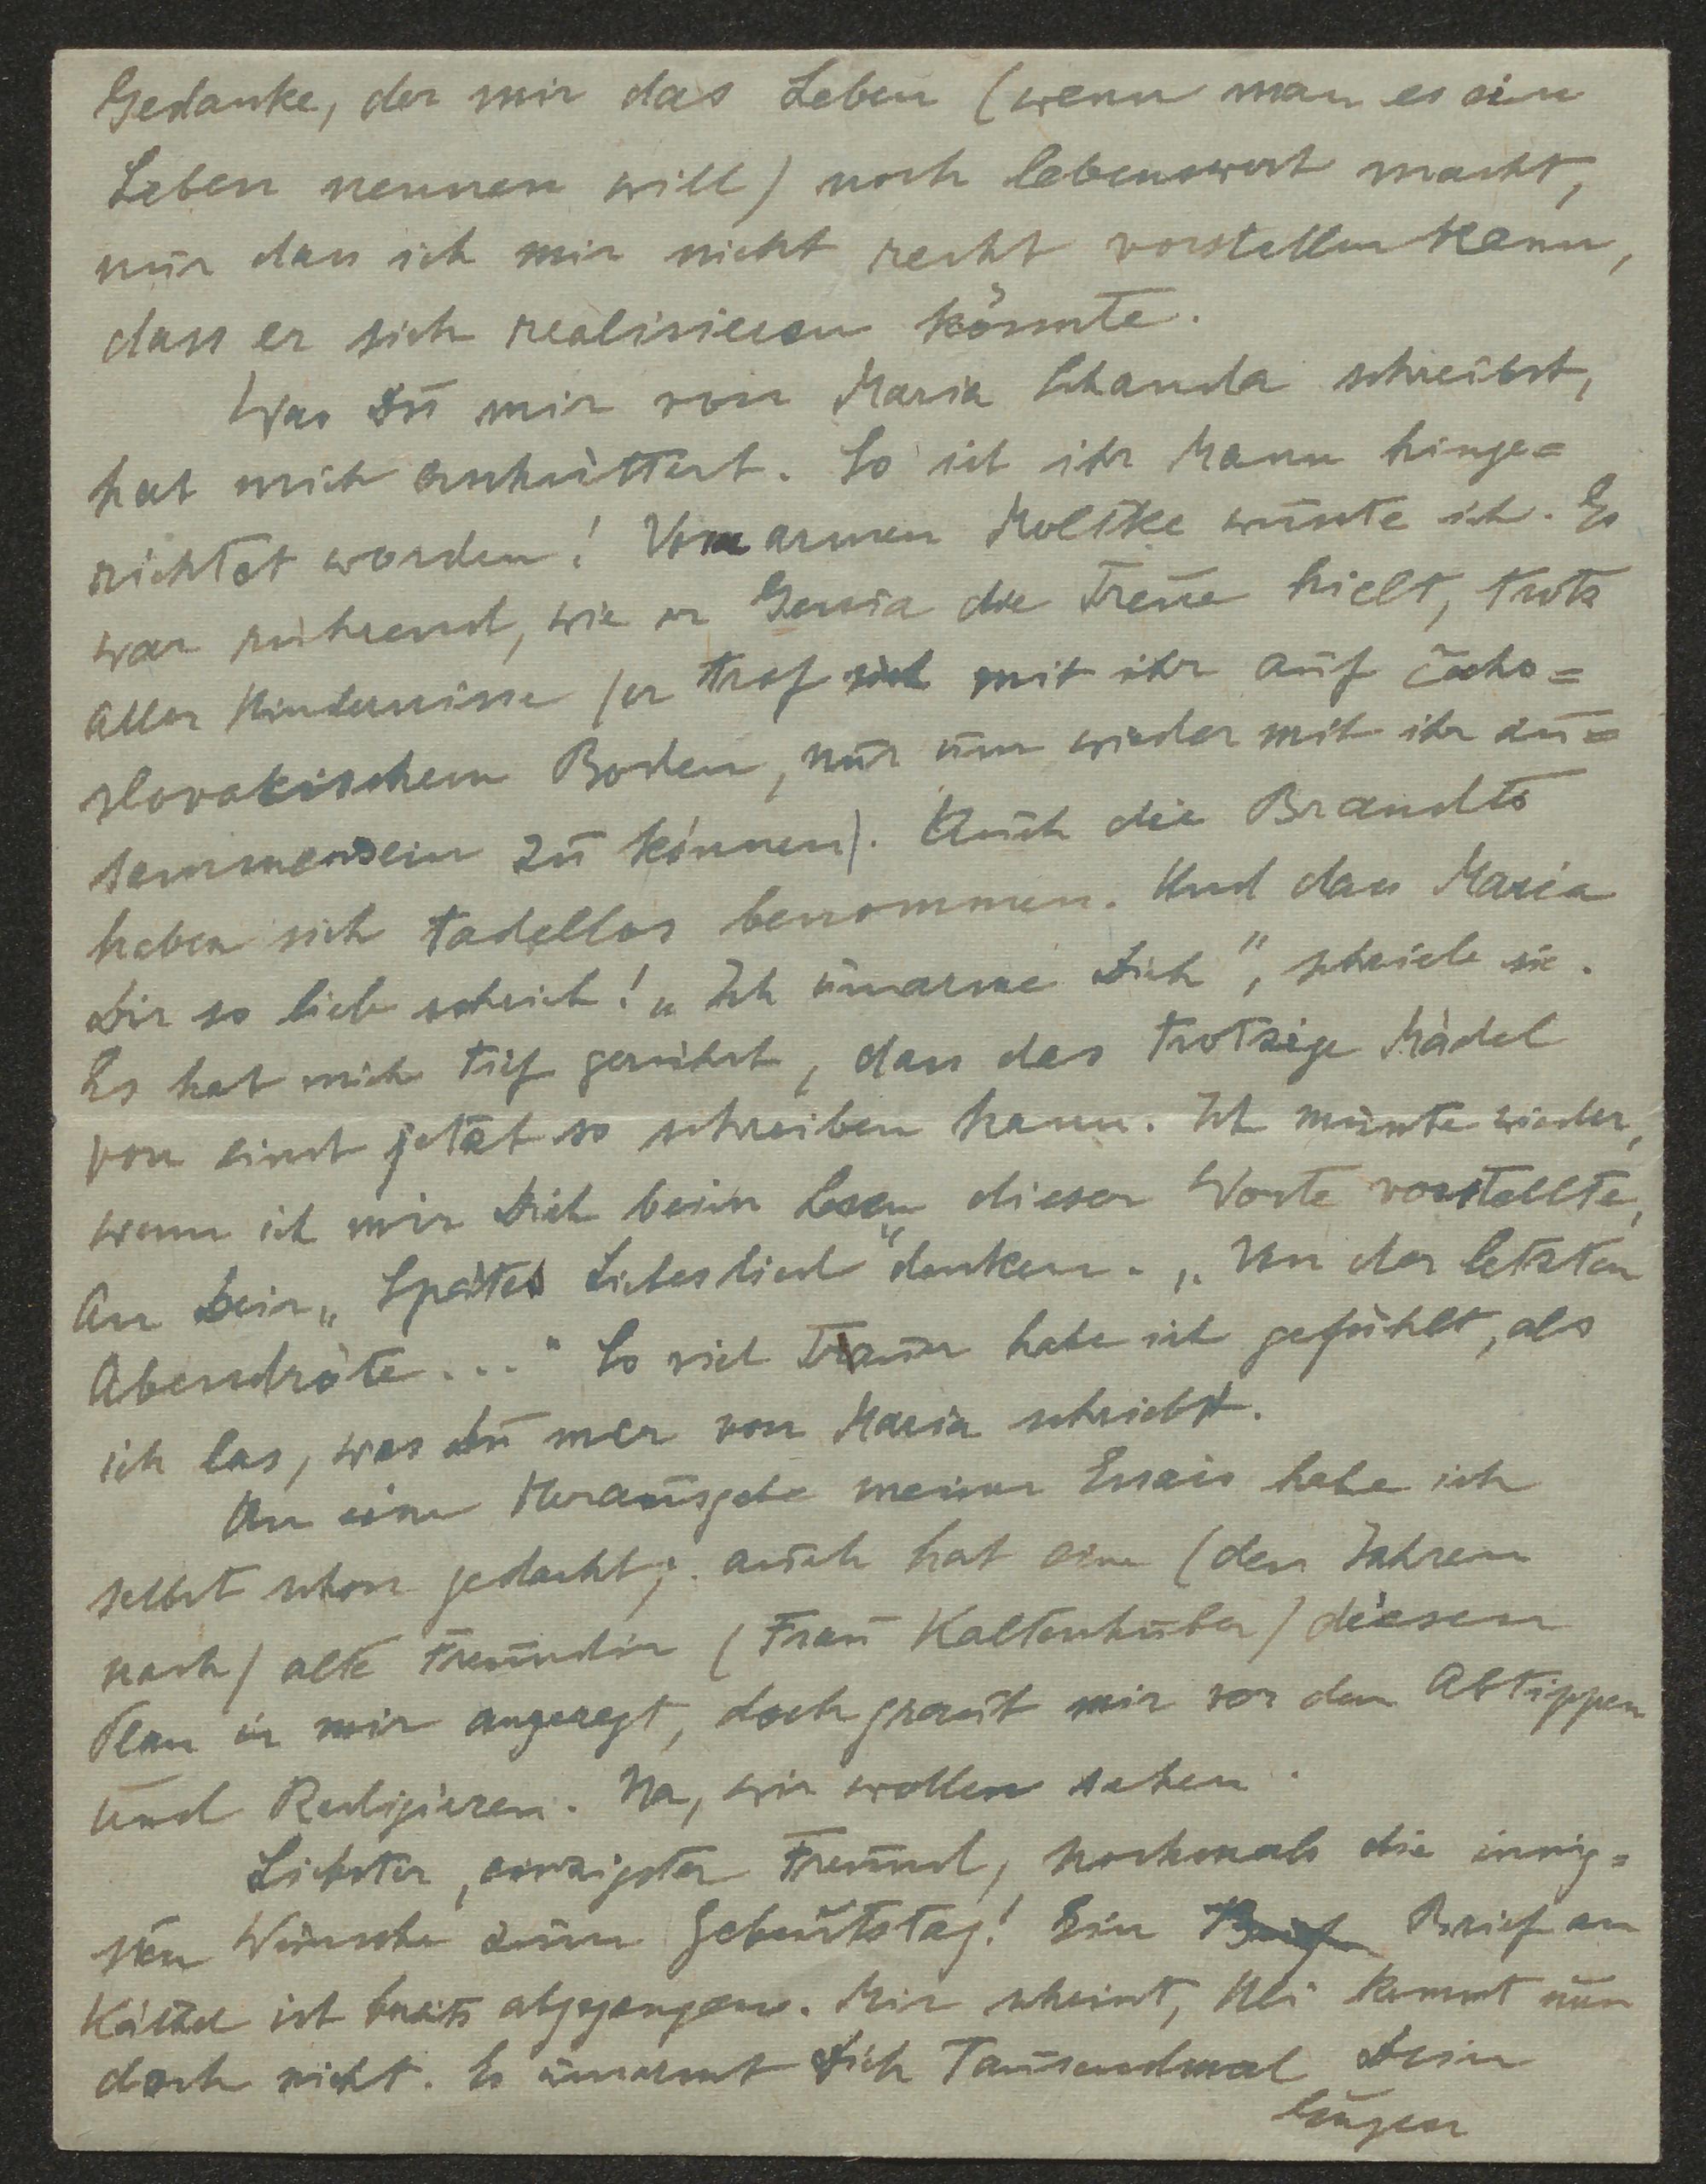 Gedanke, der mir das Leben (wenn man es ein
Leben nennen will) noch lebenswert macht,
nur dass ich mir nicht recht vorstellen kann,
dass er sich realisieren könnte.
Was Du mir von Maria Schanda schreibst,
hat mich erschüttert. So ist ihr Mann hinge=
richtet worden! Vom armen Moltke wusste ich. Es
war rührend, wie er Genia die Treue hielt, trotz
aller Hindernisse (er traf sich mit ihr auf čecho=
slovakischem Boden, nur um wieder mit ihr zu=
sammensein zu können). Auch die Brandts
haben sich tadellos benommen. Und dass Maria
Dir so lieb schrieb! „Ich umarme Dich", schrieb sie.
Es hat mich tief gerührt, dass das trotzige Mädel
von einst jetzt so schreiben kann. Ich musste wieder,
wenn ich mir Dich beim Lesen dieser Worte vorstellte,
an Dein „Spätes Liebeslied" denken. „Von der letzten
Abendröte..." So viel Trauer habe ich gefühlt, als
ich las, was Du mir von Maria schriebst.
An eine Herausgabe meiner Essais habe ich
selbst schon gedacht; auch hat eine (den Jahren
nach) alte Freundin (Frau Kaltenhuber) diesen
Plan in mir angeregt, doch graut mir vor dem Abtippen
und Redigieren. Na, wir wollen sehen.
Liebster, einzigster Freund, nochmals die innig=
sten Wünsche zum Geburtstag! Ein Brief an
Käthel ist bereits abgegangen. Mir scheint, Uli kommt nun
doch nicht. Es umarmt Dich Tausendmal Dein
Eugen